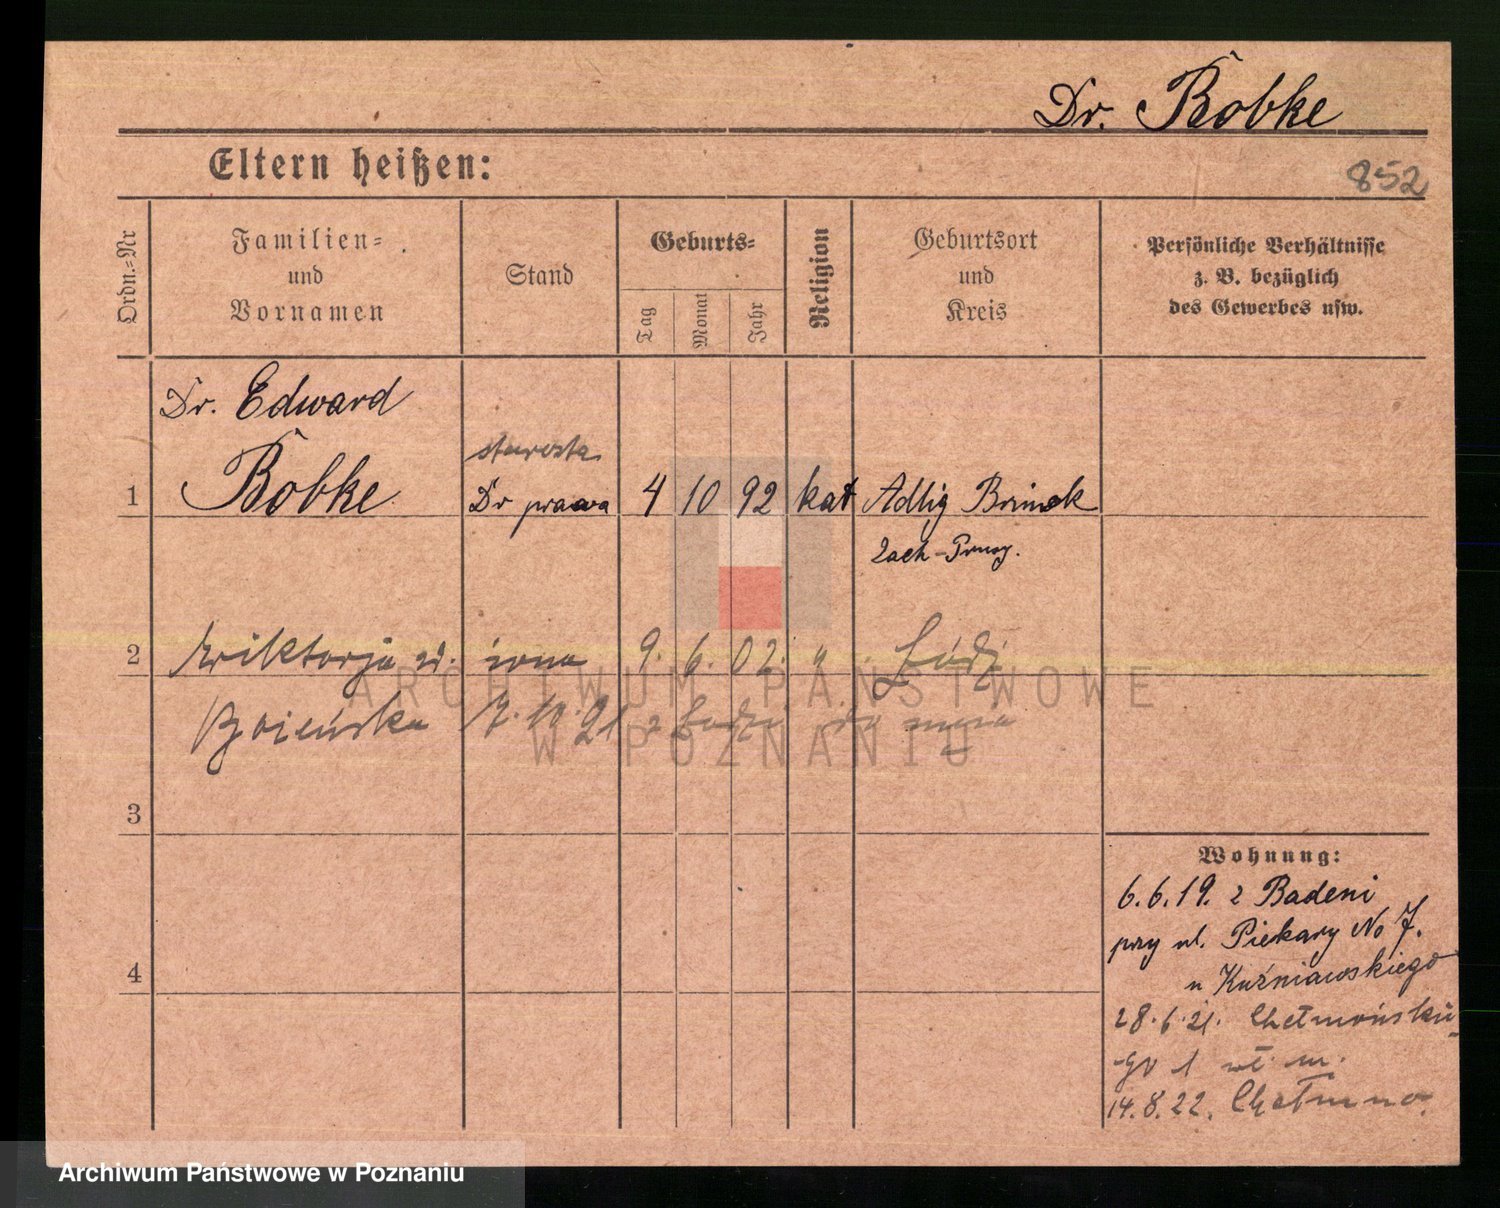 Dr. Bobke
Eltern heißen:
852
Ordn.=Nr
Familien=
und
Vornamen
Stand
Geburts=
Tag
Monat
Jahr
Religion
Geburtsort
und
Kreis
Persönliche Verhältnisse
z. B. bezüglich
des Gewerbes usw.
Dr. Edward
starosta
1 Bobke Dr prawa 4 10 92 kat Adlig Brinsk
Zach-Prusy.
2 Wiktorja żona 9. 6. 02. " Łódź
7. 10. 21 z Łodzi do męża
ARCHIWUM PAŃSTWOWE
W POZNANIU
3
4
Wohnung:
6.6.19. z Badeni
przy ul. Piekary No 7.
u Kuźniawskiego
28.6.21. Chełmońskie-
go 1 wł. m.
14.8.22. Chełmno.
Archiwum Państwowe w Poznaniu